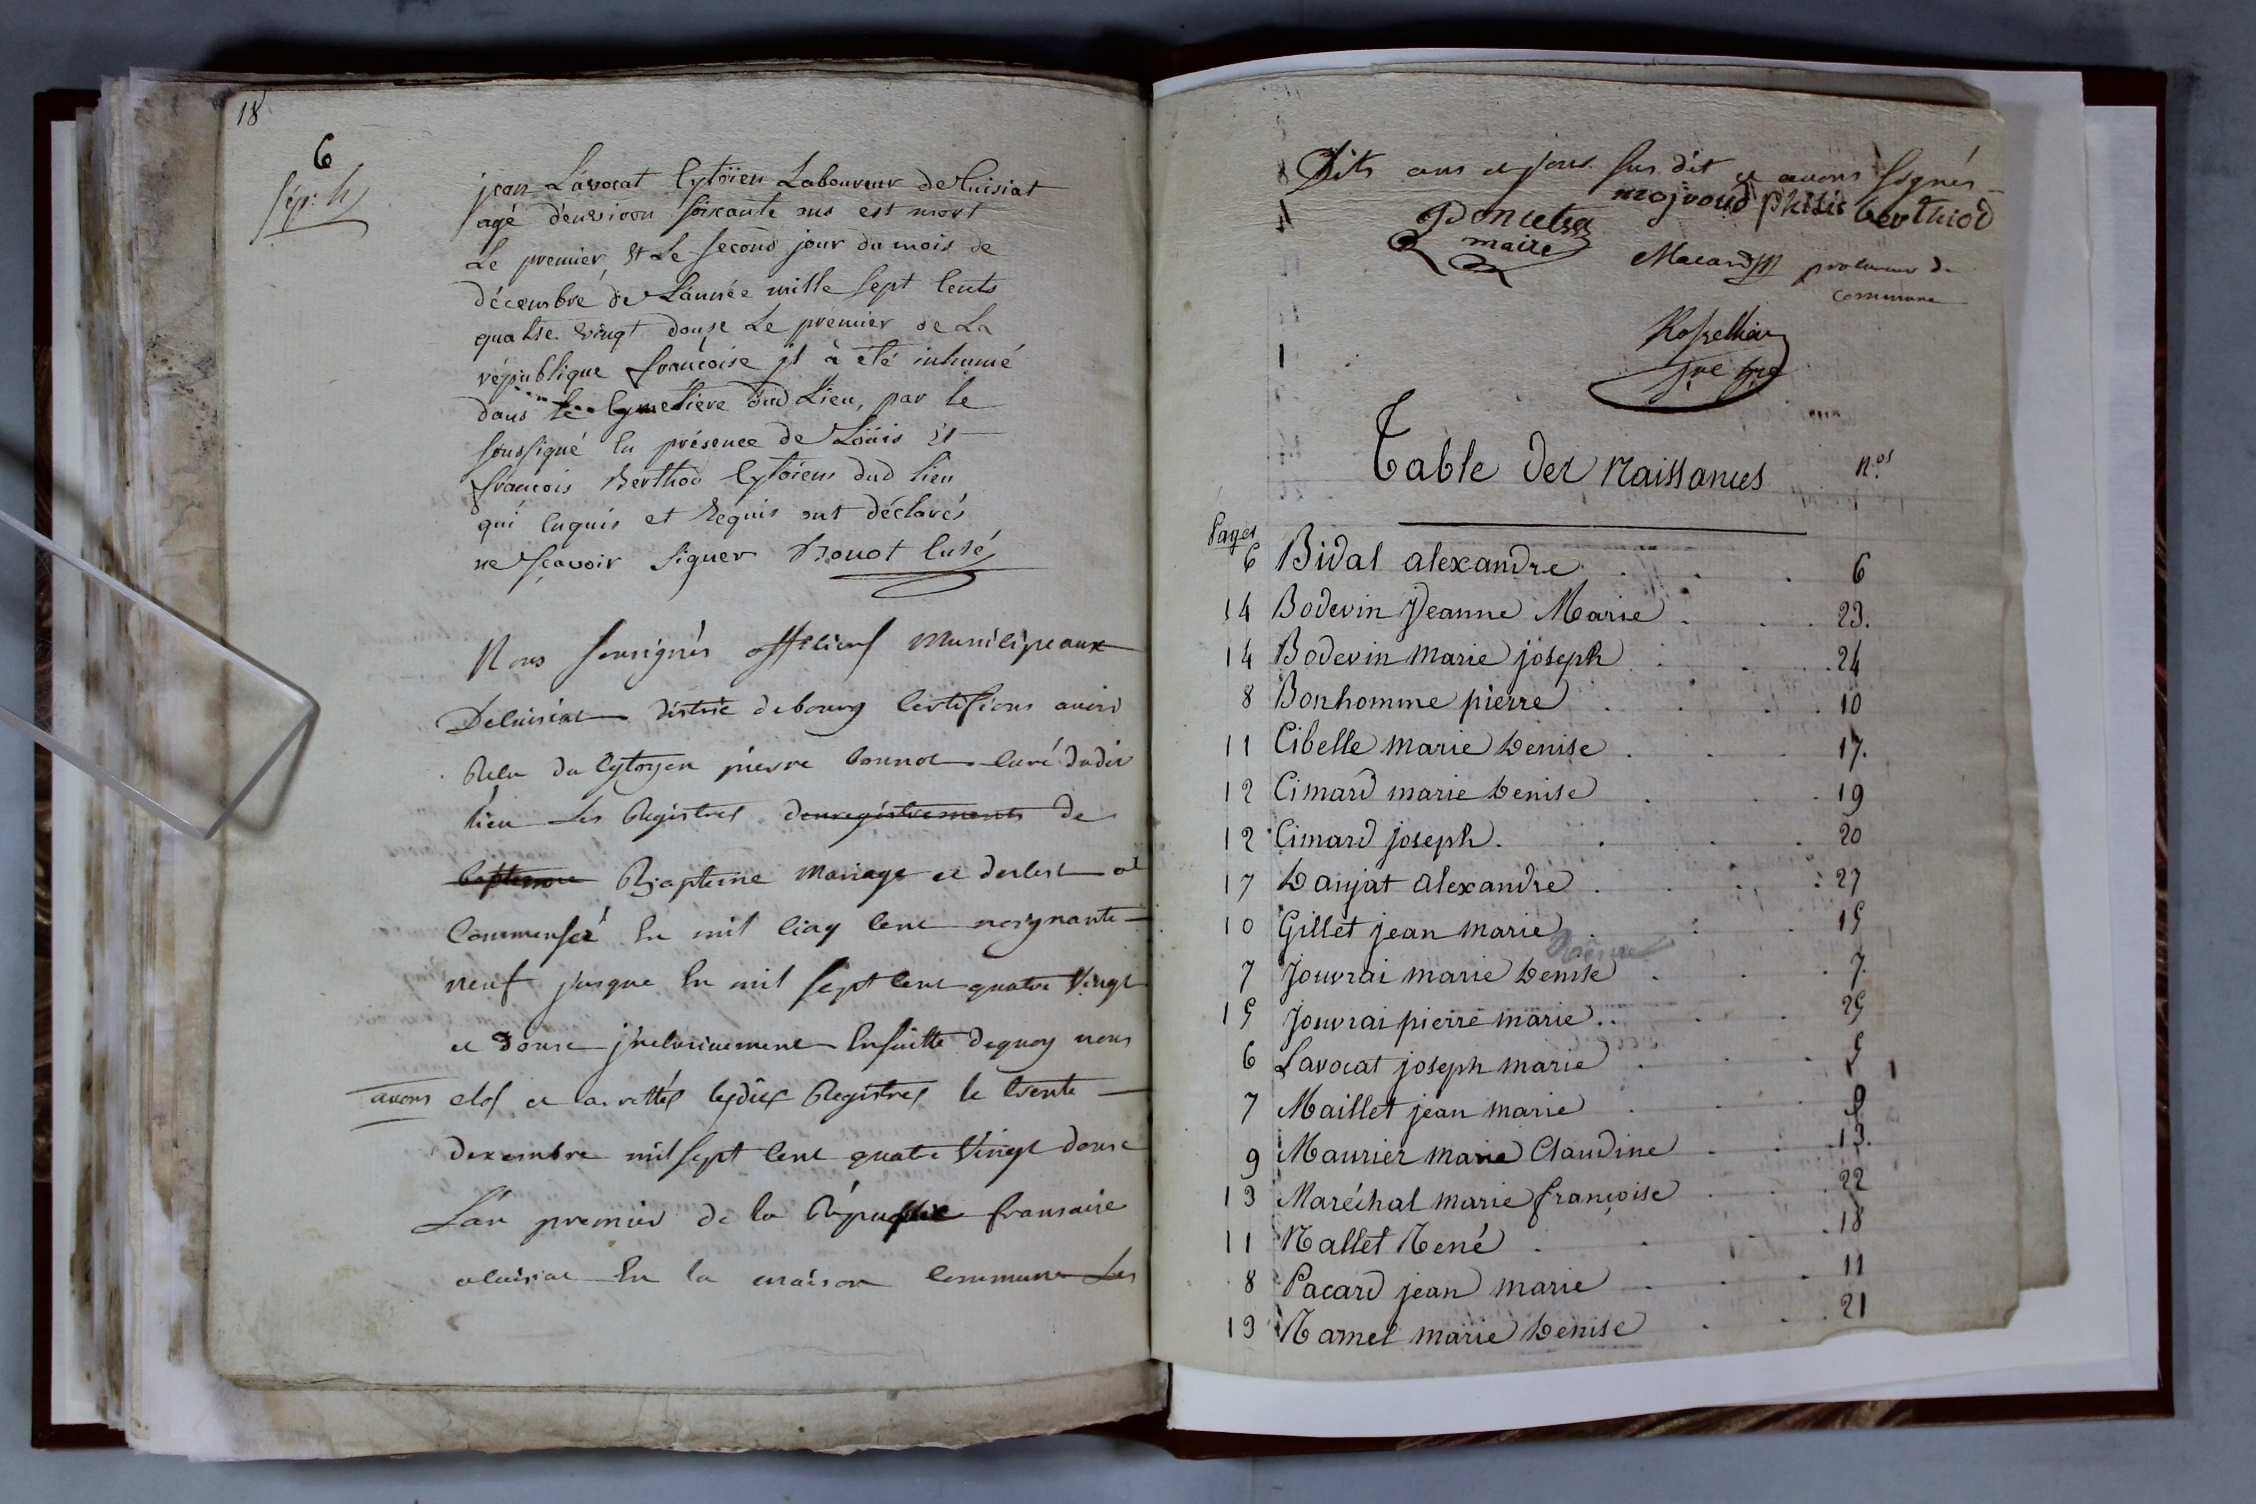 18
6
sép: h
jean Lavocat Cytoïen Laboureur de Cuisiat
agé d'environ soixante ans est mort
Le premier, et Le second jour du mois de
décembre de L'année mille sept Cents
quatre vingt douze Le premier de La
république françoise jl à été inhumé
dans le Cymetiere dud Lieu, par le
soussigné En présence de Loüis et
françois Berthod Cytoiens dud lieu
qui Enquis et Requis ont déclarés
ne sçavoir signer Bonot Curé
Nous sousignés officiers Municipeaux
De Cuisiat district de bourg Certifions avoir
Relu du Cytoyen pierre bonnot Curé dudit
lieu Les Registres denregistrements de
baptesme Baptême Mariage et de
Commensér En mil Cinq Cent
neuf jusque En mil sept Cent quatre Vingt
et douse jnclusivement Ensuitte dequoy nous
avons clos et arrettés lesdits Registres le trente
dexembre mil sept Cent quatre Vingt douse
L'an premier de la République fransaise
a Cuisiat En la maison Commune Les
Dits ans et jour sus dit et avons signés
mojroud philis berthod
Poncetsa
maire
Macard procureur de
commune
gre
Table des Naissances
N.os
Pages
6 Bidal alexandre . . . 6
14 Bodevin Jeanne Marie . . . 23.
14 Bodevin Marie joseph . . . 24
8 Bonhomme pierre . . . 10
11 Cibelle Marie Denise . . . 17.
12 Cimard marie Denise . . . 19
12 Cimard joseph . . . . 20
17 Danjat alexandre . . . 27
10 Gillet jean Marie . . . 15
7 Jouvrai marie Denise . . . 7.
15 Jouvrai pierre marie . . . 25
6 Lavocat joseph marie . . . 5
7 Maillet jean marie . . . 9
9 Maurier marie Claudine . . . 13.
13 Maréchal marie françoise . . . 22
11 Nallet René . . . 18
8 Pacard jean marie . . . 11
13 Ramel marie Denise . . . 21